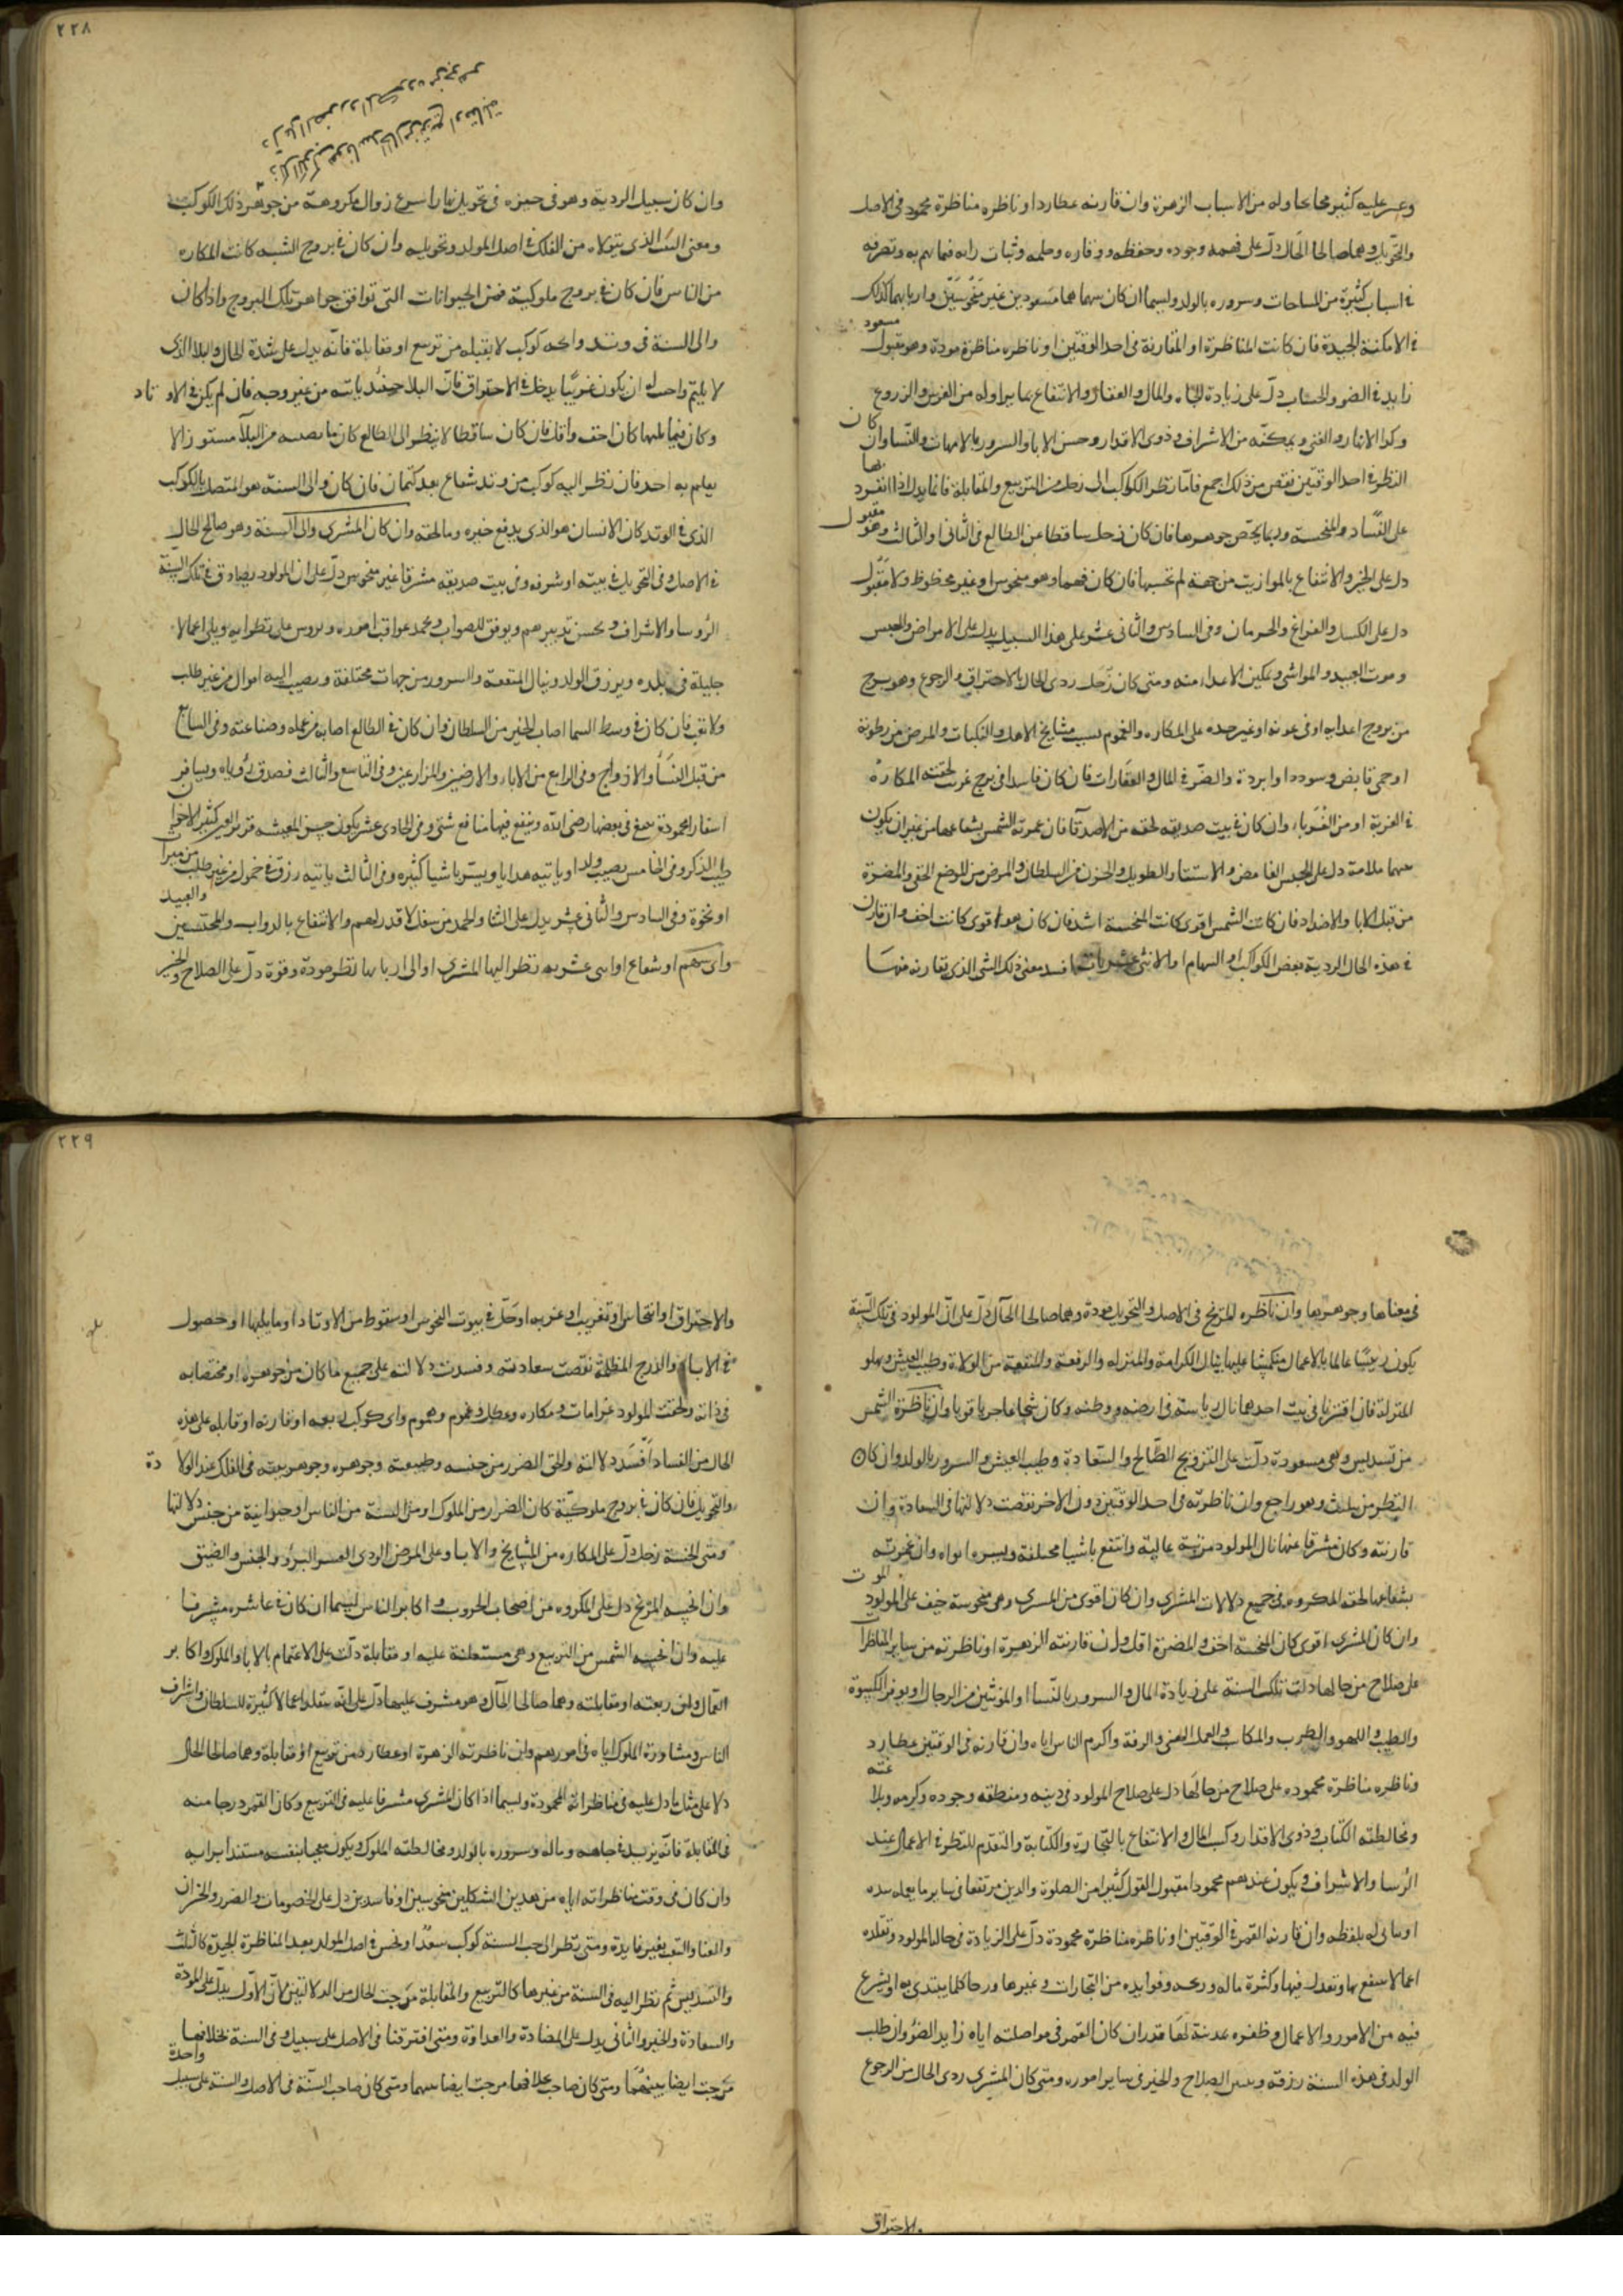 وعسر عليه كثير مما يحاوله من الاسباب الزهرة وان قارنه عطارد او ناظره مناظرة محمودة فى الاصل
والتحويل وهما صالحا الحال دل على فهمه وجوده وحفظه ووقاره وحلمه وثبات رايه فيما يهم به وتصرفه
فى اسباب كثيرة من المساحات وسروره بالولد ولسيما ان كان سهما هما مسعودين غير منحوسين واربابهما كذلك
فى الامكنة الجيدة فان كانت المناظرة او المقارنة فى احد الوقتين او ناظره مناظرة مودة وهو مقبول
مسعود
زايد فى الضو والحساب دل على زيادة الجاه والمال والعقار والانتفاع بما يزاوله من الغرس والزروع
وكرا الانهار والغنى ويمكنه من الاشراف وذوى الاقدار وحسن الابا والسرور بالامهات والنسا وان كان
النظر فى احد الوقتين نقص من ذلك اجمع فاما نظر الكواكب الى زحل من التربيع والمقابلة فانما يدل اذا انفرد بها
على الفساد والمنحسة وربما يخص جوهرها فان كان زحل ساقطا عن الطالع فى الثانى او الثالث وهو مقبول
دل على الخير والانتفاع بالمواريث من جهة لم تحسبها فان كان فيهما وهو منحوس او غير محظوظ ولا مقبول
دل على الكسل والفراغ والحرمان وفى السادس والثانى عشر على هذا السبيل يدل على الامراض والحبس
وموت العبيد والمواشى وتمكين الاعدا منه ومتى كان زحل ردى الحال بالاحتراق والرجوع وهو ببرج
من بروج اعدايه او فى غربة او غير حده على المكاره والغموم بسبب مشايخ الاهل والنكبات والمرض من رطوبة
او حمى قابض وسودا او ابردة والضر فى المال والعقارات فان كان فاسدا فى برج غريب لحقته المكاره
فى الغربة او من الغربا وان كان فى بيت صديقه لحقه من الاصدقا فان غمرته الشمس بشعاعها من غير ان يكون
بينهما ملامة دل على الحبس الغامض والاستتار الطويل والحزن من السلطان والمرض من الموضع الخفى والمضرة
من قبل الابا والاضداد فان كانت الشمس اقوى كانت المنحسة اشد فان كان هو اقوى كانت اخف وان قارن
فى هذه الحال الردية بعض الكواكب او السهام او الاثنى عشريات فسد معنى ذلك الشى الذى تقارنه منها
٢٢٨
وان كان سبيل الردية وهو فى حيزه فى تحويل نهار اسرع زوال مكروهه من جوهر ذلك الكوكب
ومعنى البيت الذى يتولاه من الفلك فى اصل المولد وتحويله وان كان فى بروج الشبه كانت المكاره
من الناس فان كان فى بروج ملوكية فمن الحيوانات التى توافق جواهر تلك البروج واذا كان
والى السنة فى وتد واحد كوكب لا يقبله من تربيع او مقابلة فانه يدل على شدة الحال والبلا الذى
لا يليتم واحد له ان يكون غربيا يدخل فى الاحتراق فان البلا حينئذ ياتيه من غير وجه فان لم يكن فى الاوتاد
وكان فيما يليها كان اخف واقل فان كان ساقطا لا ينظر الى الطالع كان ما يصيبه من البلا مستورا لا
يعلم به احد فان نظر اليه كوكب من وتد شعاع بعد كتمان فان كان والى السنة هو المتصل بالكوكب
الذى فى الوتد كان الانسان هو الذى يدفع خيره وما لحقه وان كان المشترى والى السنة وهو صالح الحال
فى الاصل وفى التحويل فى بيته او شرفه وفى بيت صديقه مشرقا غير منحوس دل على ان المولود يصادق فى تلك السنة
الروسا والاشراف ويحسن تدبيرهم ويوفق للصواب ويحمد عواقب اموره ويروس على نظرايه ويلى اعمالا
جليلة فى بلده ويرزق الولد وينال المنفعة والسرور من جهات مختلفة ويصيب اليه اموال من غير طلب
ولا تعب فان كان فى وسط السما اصاب الخير من السلطان وان كان فى الطالع اصابه من عمله وصناعته وفى السابع
من قبل النسا والازواج وفى الرابع من الابا والارضين والمزارعين وفى التاسع والثالث فصدق روياه ويسافر
اسفارا محمودة ينفع فى بعضها رضى الله وينفع فيها منافع شتى وفى الحادى عشر يكون حسن المعيشة قرير العين كثير الاخوان
طيب الذكر وفى الخامس يصيب ولدا وياتيه هدايا ويستر باشيا كثيرة وفى الثالث ياتيه رزق فى خمول من غير طلب من ميراث
او نخوة وفى السادس والثانى عشر يدل على الثنا والحمد من سفل لا قدر لهم والانتفاع بالدواب والمحتبسين والعبيد
واى سهم او شعاع او اثنى عشرية نظر اليها المشترى او الى اربابها نظر مودة وقوة دل على الصلاح والخير
فى معناها وجوهرها وان ناظره المريخ فى الاصل والتحويل مودة وهما صالحا الحال دل على ان المولود فى تلك السنة
يكون رييسا عالما بالاعمال متكمشا عليها ينال الكرامة والمنزلة والرفعة والمنفعة من الولاة وطيب العيش وعلو
المنزلة فان اقترنا فى بيت احدهما نال رياسة فى ارضه ووطنه وكان شجاعا جريا قويا وان ناظرته الشمس
من تسديس وهى مسعودة دلت على التزويج الصالح والسعادة وطيب العيش والسرور بالولد وان كان
النظر من تثليث وهو راجع وان ناظرته فى احد الوقتين دون الاخر نقصت دلالتها فى السعادة وان
قارنته وكان مشرقا عنها نال المولود مرتبة عالية وانتفع باشيا مختلفة ويسره ابواه وان غمرته
بشعاعها لحقه المكروه فى جميع دلالات المشترى وان كان اقوى من المشترى وهى منحوسة خيف على المولود الموت
وان كان المشترى اقوى كان المنحسة اخف والمضرة اقل وان قارنته الزهرة او ناظرته من ساير المناظرات
على صلاح من حالها دلت تلك السنة على زيادة المال والسرور بالنسا او المونثين من الرجال او يوفر الكسوة
والطيب واللهو والطرب والمكاسب والعمل الهنى والرفة واكرم الناس اياه وان قارنه فى الوقتين عطارد
وناظره مناظرة محموده على صلاح من حالها دل على صلاح المولود فى دينه ومنطقه وجوده وكرمه وبلاغته
ومخالطته الكتاب وذوى الاقدار وكسب المال والانتفاع بالتجارة والكتابة والتقدم للنظر فى الاعمال عند
الروسا والاشراف ويكون عندهم محمودا مقبول القول كثيرا من الصلوة والدين مرتفعا فى ساير ما يعمله بيده
او ياتى له بلفظه وان قارنه القمر فى الوقتين او ناظره مناظرة محمودة دل على الزيادة فى حال المولود وتقلده
اعمالا ينتفع بها وتعدل فيها وكثرة ماله وربحه وفوايده من التجارات وغيرها ورجا كلما يبتدى به او يشرع
فيه من الامور والاعمال وظفره عدنة لها قدر ان كان القمر فى مواصلته اياه زايد الضو وان طلب
الولد فى هذه السنة رزقه ويسر الصلاح والخير فى ساير اموره ومتى كان المشترى ردى الحال من الرجوع
والاحتراق
٢٢٩
والاحتراق او انتحاس او تغريب او غربه او حل فى بيوت النحوس او سقوط من الاوتاد او ما يليها او حصول
فى الابار والدرج المظلمة نقصت سعادته وفسدت دلالته على جميع ما كان من جوهره او مختصا به
فى ذاته ولحقت المولود غرامات ومكاره وعطل وغموم وهموم واى كوكب ربعه او قارنه او قابله على هذه
الحال من الفساد افسد دلالته ولحق الضرر من جنسه وطبيعته وجوهره وجوهر بيته فى الفلك عند الولادة
والتحويل فان كان فى بروج ملوكية كان الضرر من الملوك او من السنة من الناس او حيوانية من جنس دلالتها
ومتى انحسه زحل دل على المكاره من المشايخ والابا وعلى المرض الردى العسر البرؤ والحبس والضيق
وان انحسه المريخ دل على المكروه من اصحاب الحروب واكابر الناس لسيما ان كان فى عاشره مشرفا
عليه وان انحسه الشمس من التربيع وهى مستعلية عليه او مقابلة دلت على الاغتمام بالابا والملوك واكابر
العمال وان ربعته او مقابلته وهما صالحا الحال وهو مشرف عليها دل على انه يتقلد اعمالا كثيرة للسلطان واشراف
الناس ومشاورة الملوك اياه فى امورهم وان ناظرته الزهرة او عطارد من تربيع او مقابلة وهما صالحا الحال
دلا على مثل ما دل عليه فى مناظراته المحمودة ولسيما اذا كان المشترى مشرفا عليه فى التربيع وكان القمر درجا منه
فى المقابلة فانه يزيد فى جاهه وماله وسروره بالولد ومخالطته الملوك ويكون معجبا بنفسه مستبدا برايه
وان كان فى وقت مناظراته اياه من هذين الشكلين منحوسين او فاسدين دل على الخصومات والضرر والخسران
والعنا والتعب بغير فايدة ومتى نظر الى صاحب السنة كوكب سعد او نحس فى اصل المولد بعد المناظرة الجيدة كالتثليث
والتسديس ثم نظر اليه فى السنة من غيرها كالتربيع والمقابلة مزجت الحال من الدلالتين لان الاول يدل على المودة
والسعادة والخير والثانى يدل على المضادة والعداوة ومتى افترقتا فى الاصل على سبيل وفى السنة بخلافها
مزجت ايضا بينهما ومتى كان صاحب خلافها مزجت ايضا بينهما ومتى كان صاحب السنة فى الاصل والسنة على سبيل واحدة